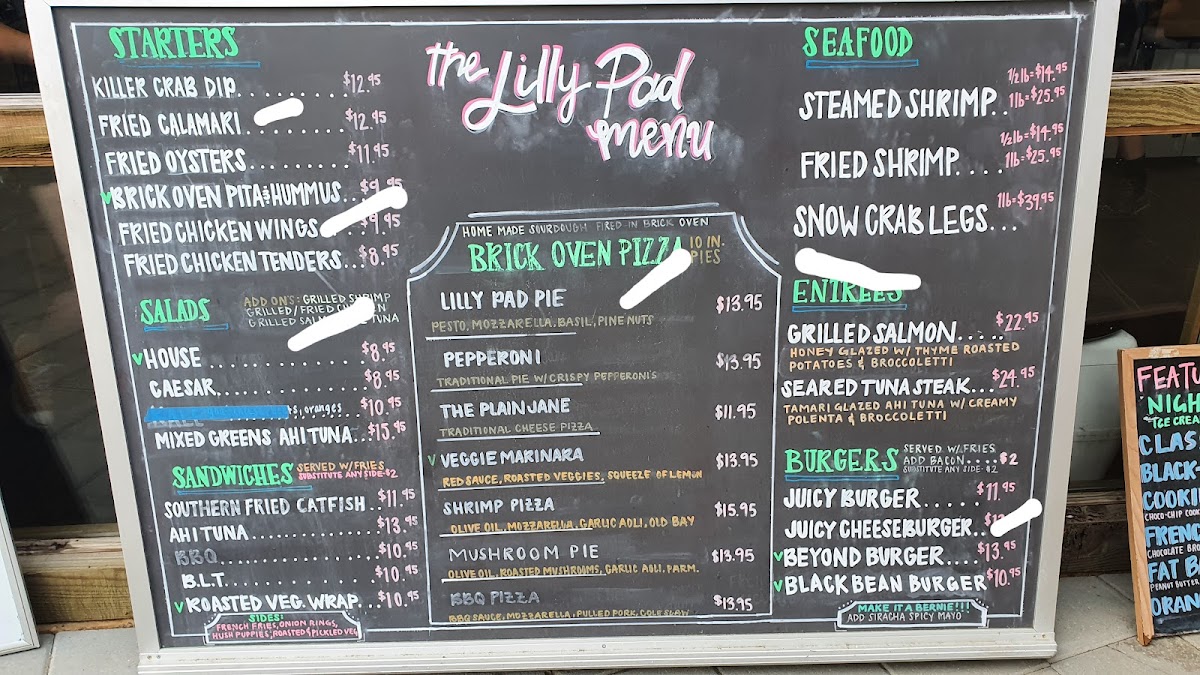 the Lilly Pad
menu
STARTERS
KILLER CRAB DIP........ $12.95
FRIED CALAMARI........ $12.95
FRIED OYSTERS......... $11.95
BRICK OVEN PITA & HUMMUS...
FRIED CHICKEN WINGS $9.95
FRIED CHICKEN TENDERS... $8.95
SALADS
ADD ON'S: GRILLED SHRIMP
GRILLED/FRIED
GRILLED TUNA
HOUSE.............. $8.95
CAESAR............. $8.95
oranges... $10.95
MIXED GREENS AHI TUNA... $15.95
SANDWICHES
SERVED W/FRIES
SUBSTITUTE ANY SIDE-$2
SOUTHERN FRIED CATFISH.. $11.95
AHI TUNA............. $13.95
BBQ................. $10.95
B.L.T................ $10.95
ROASTED VEG. WRAP... $10.95
SIDES:
FRENCH FRIES, ONION RINGS,
HUSH PUPPIES, ROASTED & PICKLED VEG
HOME MADE SOURDOUGH FIRED IN BRICK OVEN
BRICK OVEN PIZZA
10 IN.
PIES
LILLY PAD PIE $13.95
PESTO, MOZZARELLA, BASIL, PINE NUTS
PEPPERONI $13.95
TRADITIONAL PIE W/ CRISPY PEPPERONI'S
THE PLAIN JANE $11.95
TRADITIONAL CHEESE PIZZA
VEGGIE MARINARA $13.95
RED SAUCE, ROASTED VEGGIES, SQUEEZE OF LEMON
SHRIMP PIZZA $15.95
OLIVE OIL, MOZZARELLA, GARLIC AOLI, OLD BAY
MUSHROOM PIE $13.95
OLIVE OIL, ROASTED MUSHROOMS, GARLIC AOLI, PARM.
BBQ PIZZA $13.95
BBQ SAUCE, MOZZARELLA, PULLED PORK, COLE SLAW
SEAFOOD
1/2 lb = $14.95
STEAMED SHRIMP.. 1 lb = $25.95
1/2 lb = $14.95
FRIED SHRIMP.... 1 lb = $25.95
SNOW CRAB LEGS... 1 lb = $39.95
ENTREES
GRILLED SALMON..... $22.95
HONEY GLAZED W/ THYME ROASTED
POTATOES & BROCCOLETTI
SEARED TUNA STEAK... $24.95
TAMARI GLAZED AHI TUNA W/ CREAMY
POLENTA & BROCCOLETTI
BURGERS
SERVED W/FRIES
ADD BACON.... $2
SUBSTITUTE ANY SIDE-$2
JUICY BURGER...... $11.95
JUICY CHEESEBURGER..
BEYOND BURGER.... $13.95
BLACK BEAN BURGER $10.95
MAKE IT A BERNIE!!!
ADD SIRACHA SPICY MAYO
FEATU
NIGH
ICE CREA
CLAS
BLACK
COOKI
CHOCO-CHIP COOK
FRENC
CHOCOLATE BRO
FAT BA
PEANUT BUTTER
ORAN